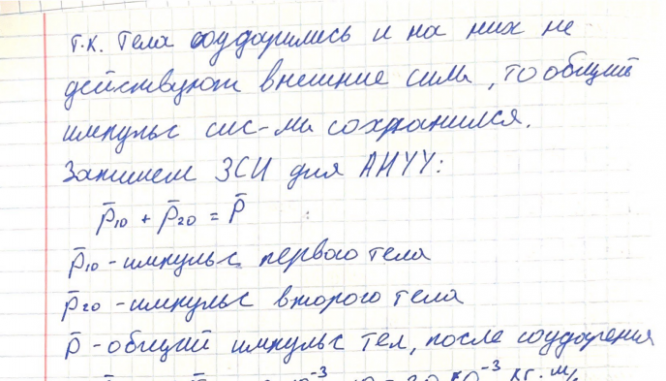 т.к. тела соударились и на них не
действуют внешние силы, то общий
импульс сис-мы сохранился.
Запишем ЗСИ для АНУУ:
p̄₁₀ + p̄₂₀ = p̄
p̄₁₀ - импульс первого тела
p̄₂₀ - импульс второго тела
p̄ - общий импульс тел, после соударения